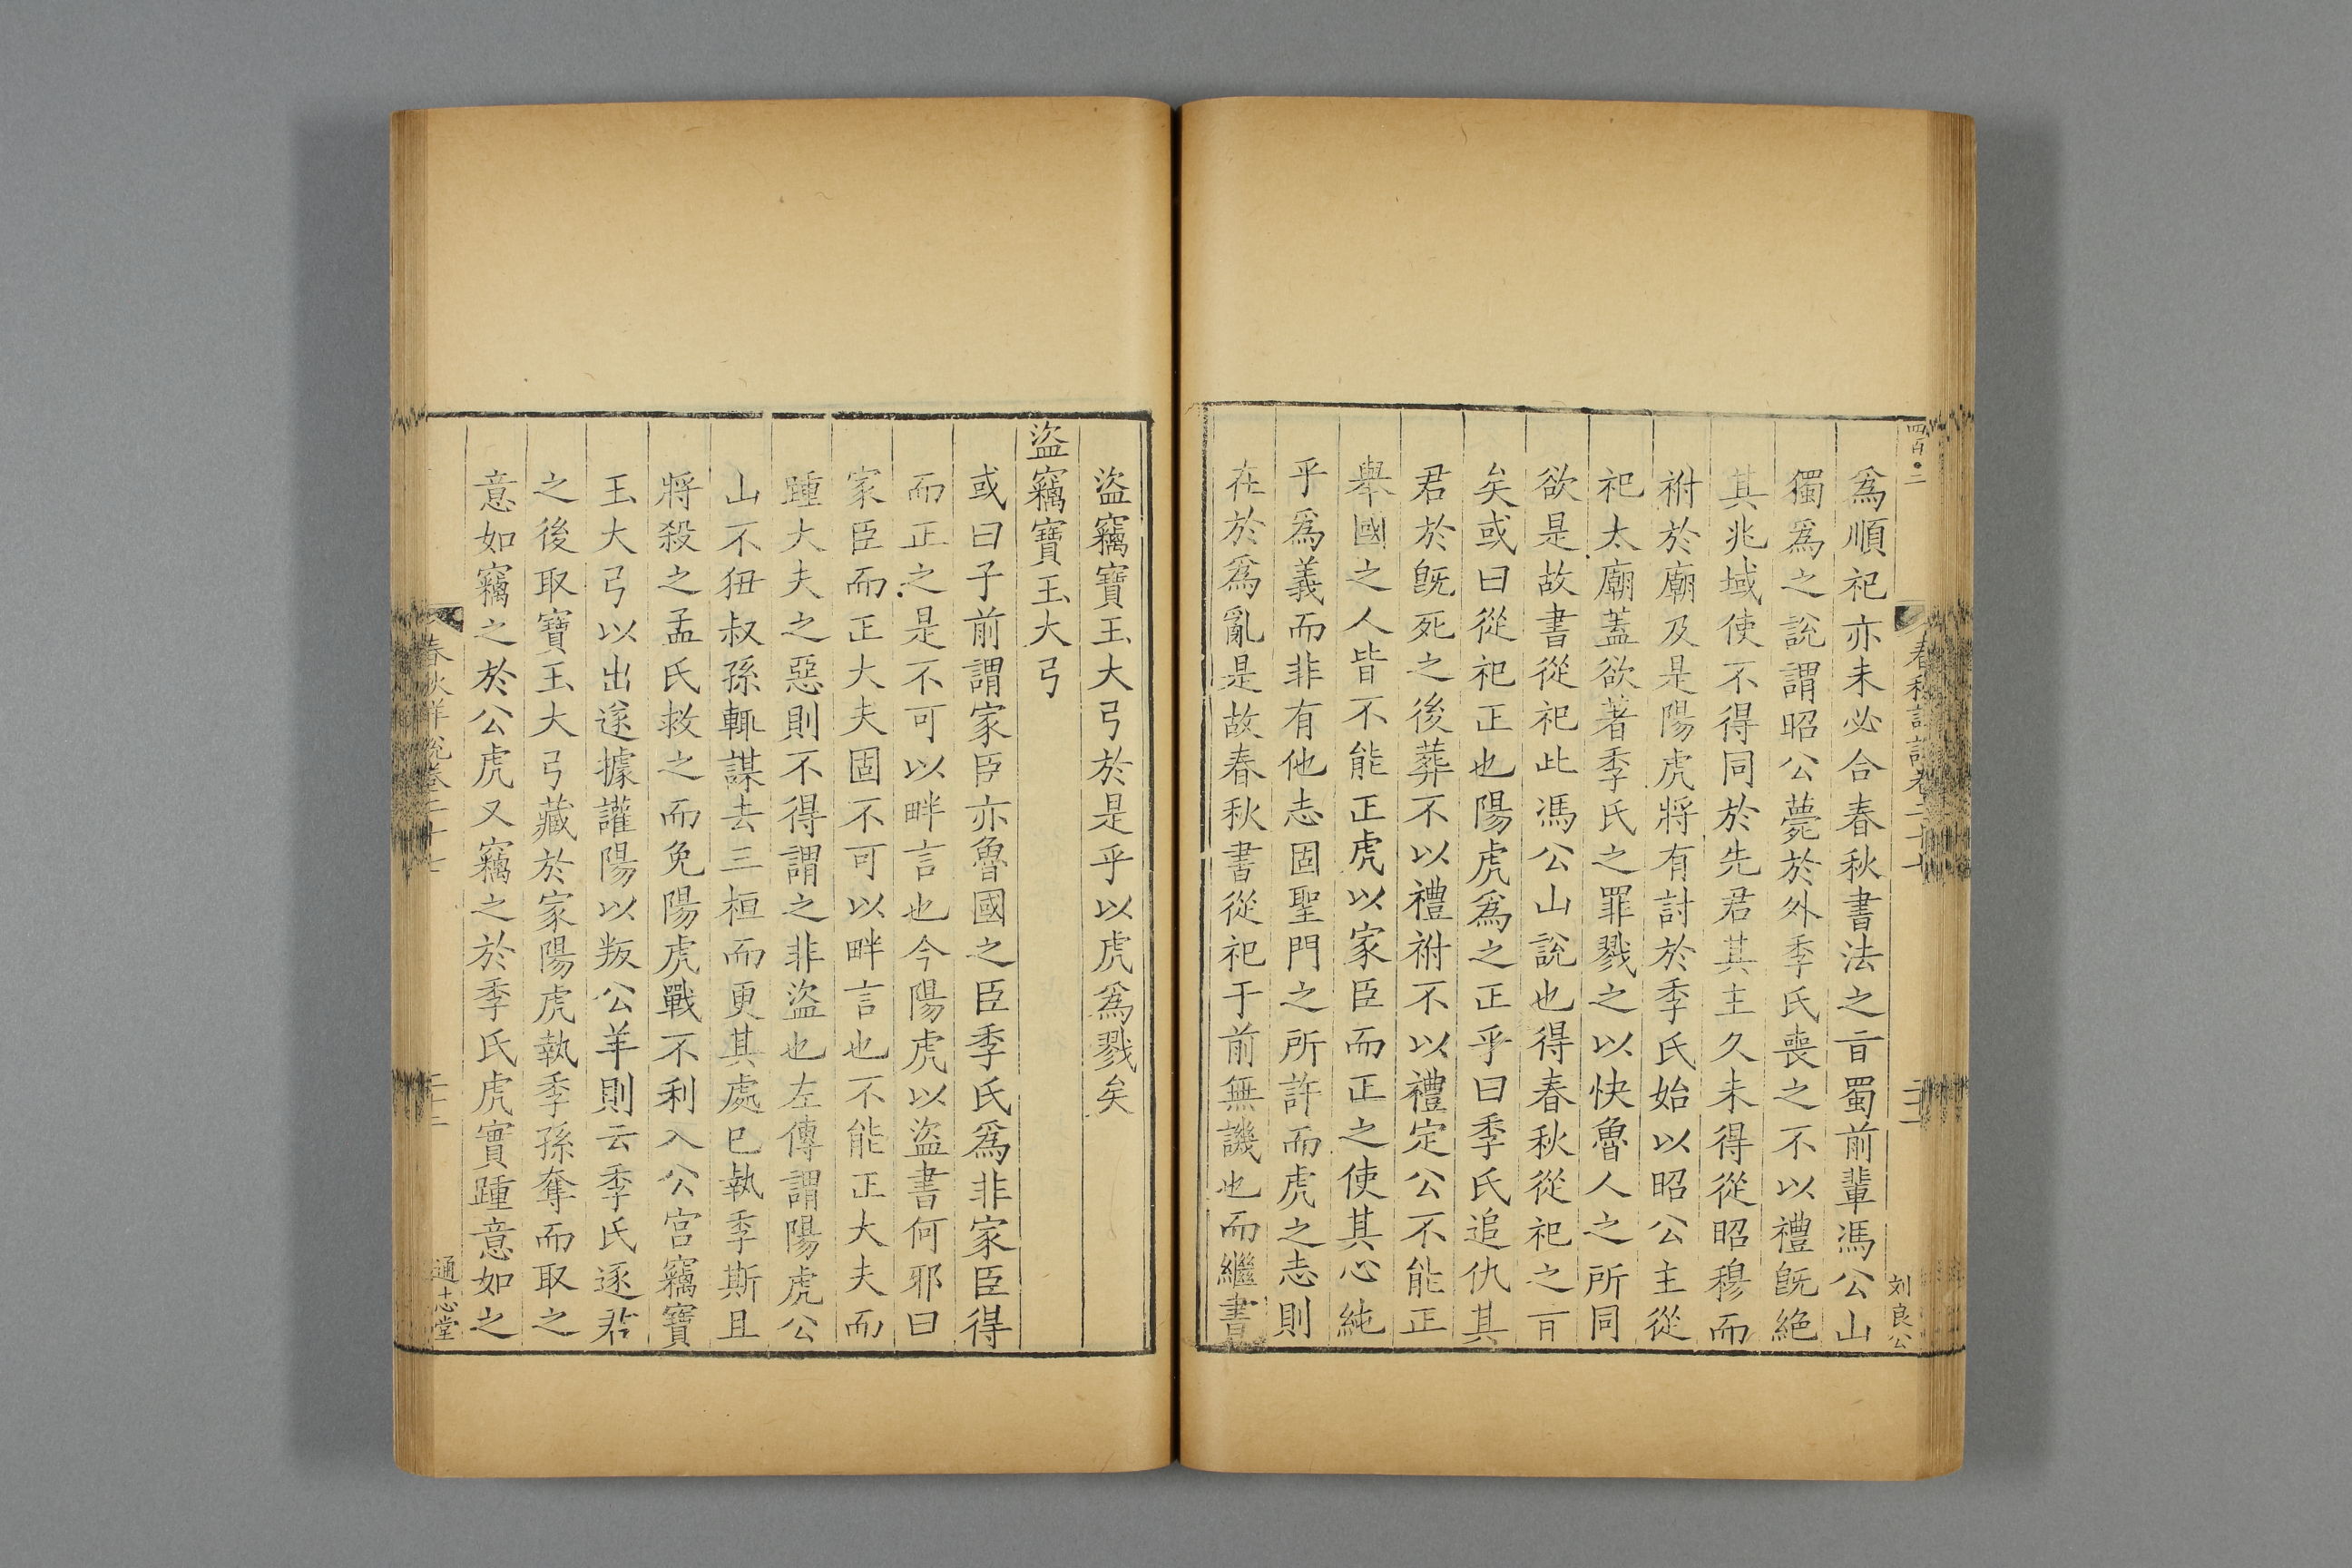 四百●二
春秋詳說卷二十七
二十二
刘良公
爲順祀亦未必合春秋書法之㫖蜀前輩馮公山
獨爲之說謂昭公薨於外季氏喪之不以禮旣絶
其兆域使不得同於先君其主久未得從昭穆而
祔於廟及是陽虎將有討於季氏始以昭公主從
祀太廟蓋欲著季氏之罪戮之以快魯人之所同
欲是故書從祀此馮公山說也得春秋從祀之㫖
矣或曰從祀正也陽虎爲之正乎曰季氏追仇其
君於旣死之後葬不以禮祔不以禮定公不能正
舉國之人皆不能正虎以家臣而正之使其心純
乎爲義而非有他志固聖門之所許而虎之志則
在於爲亂是故春秋書從祀于前無譏也而繼書
盜竊寶玉大弓於是乎以虎爲戮矣
盜竊寶玉大弓
或曰子前謂家臣亦魯國之臣季氏爲非家臣得
而正之是不可以畔言也今陽虎以盜書何邪曰
家臣而正大夫固不可以畔言也不能正大夫而
踵大夫之惡則不得謂之非盜也左傳謂陽虎公
山不狃叔孫輒謀去三桓而更其處已執季斯且
將殺之孟氏救之而免陽虎戰不利入公宮竊寶
玉大弓以出遂據讙陽以叛公羊則云季氏逐君
之後取寶玉大弓藏於家陽虎執季孫奪而取之
意如竊之於公虎又竊之於季氏虎實踵意如之
春秋詳說卷二十七
通志堂